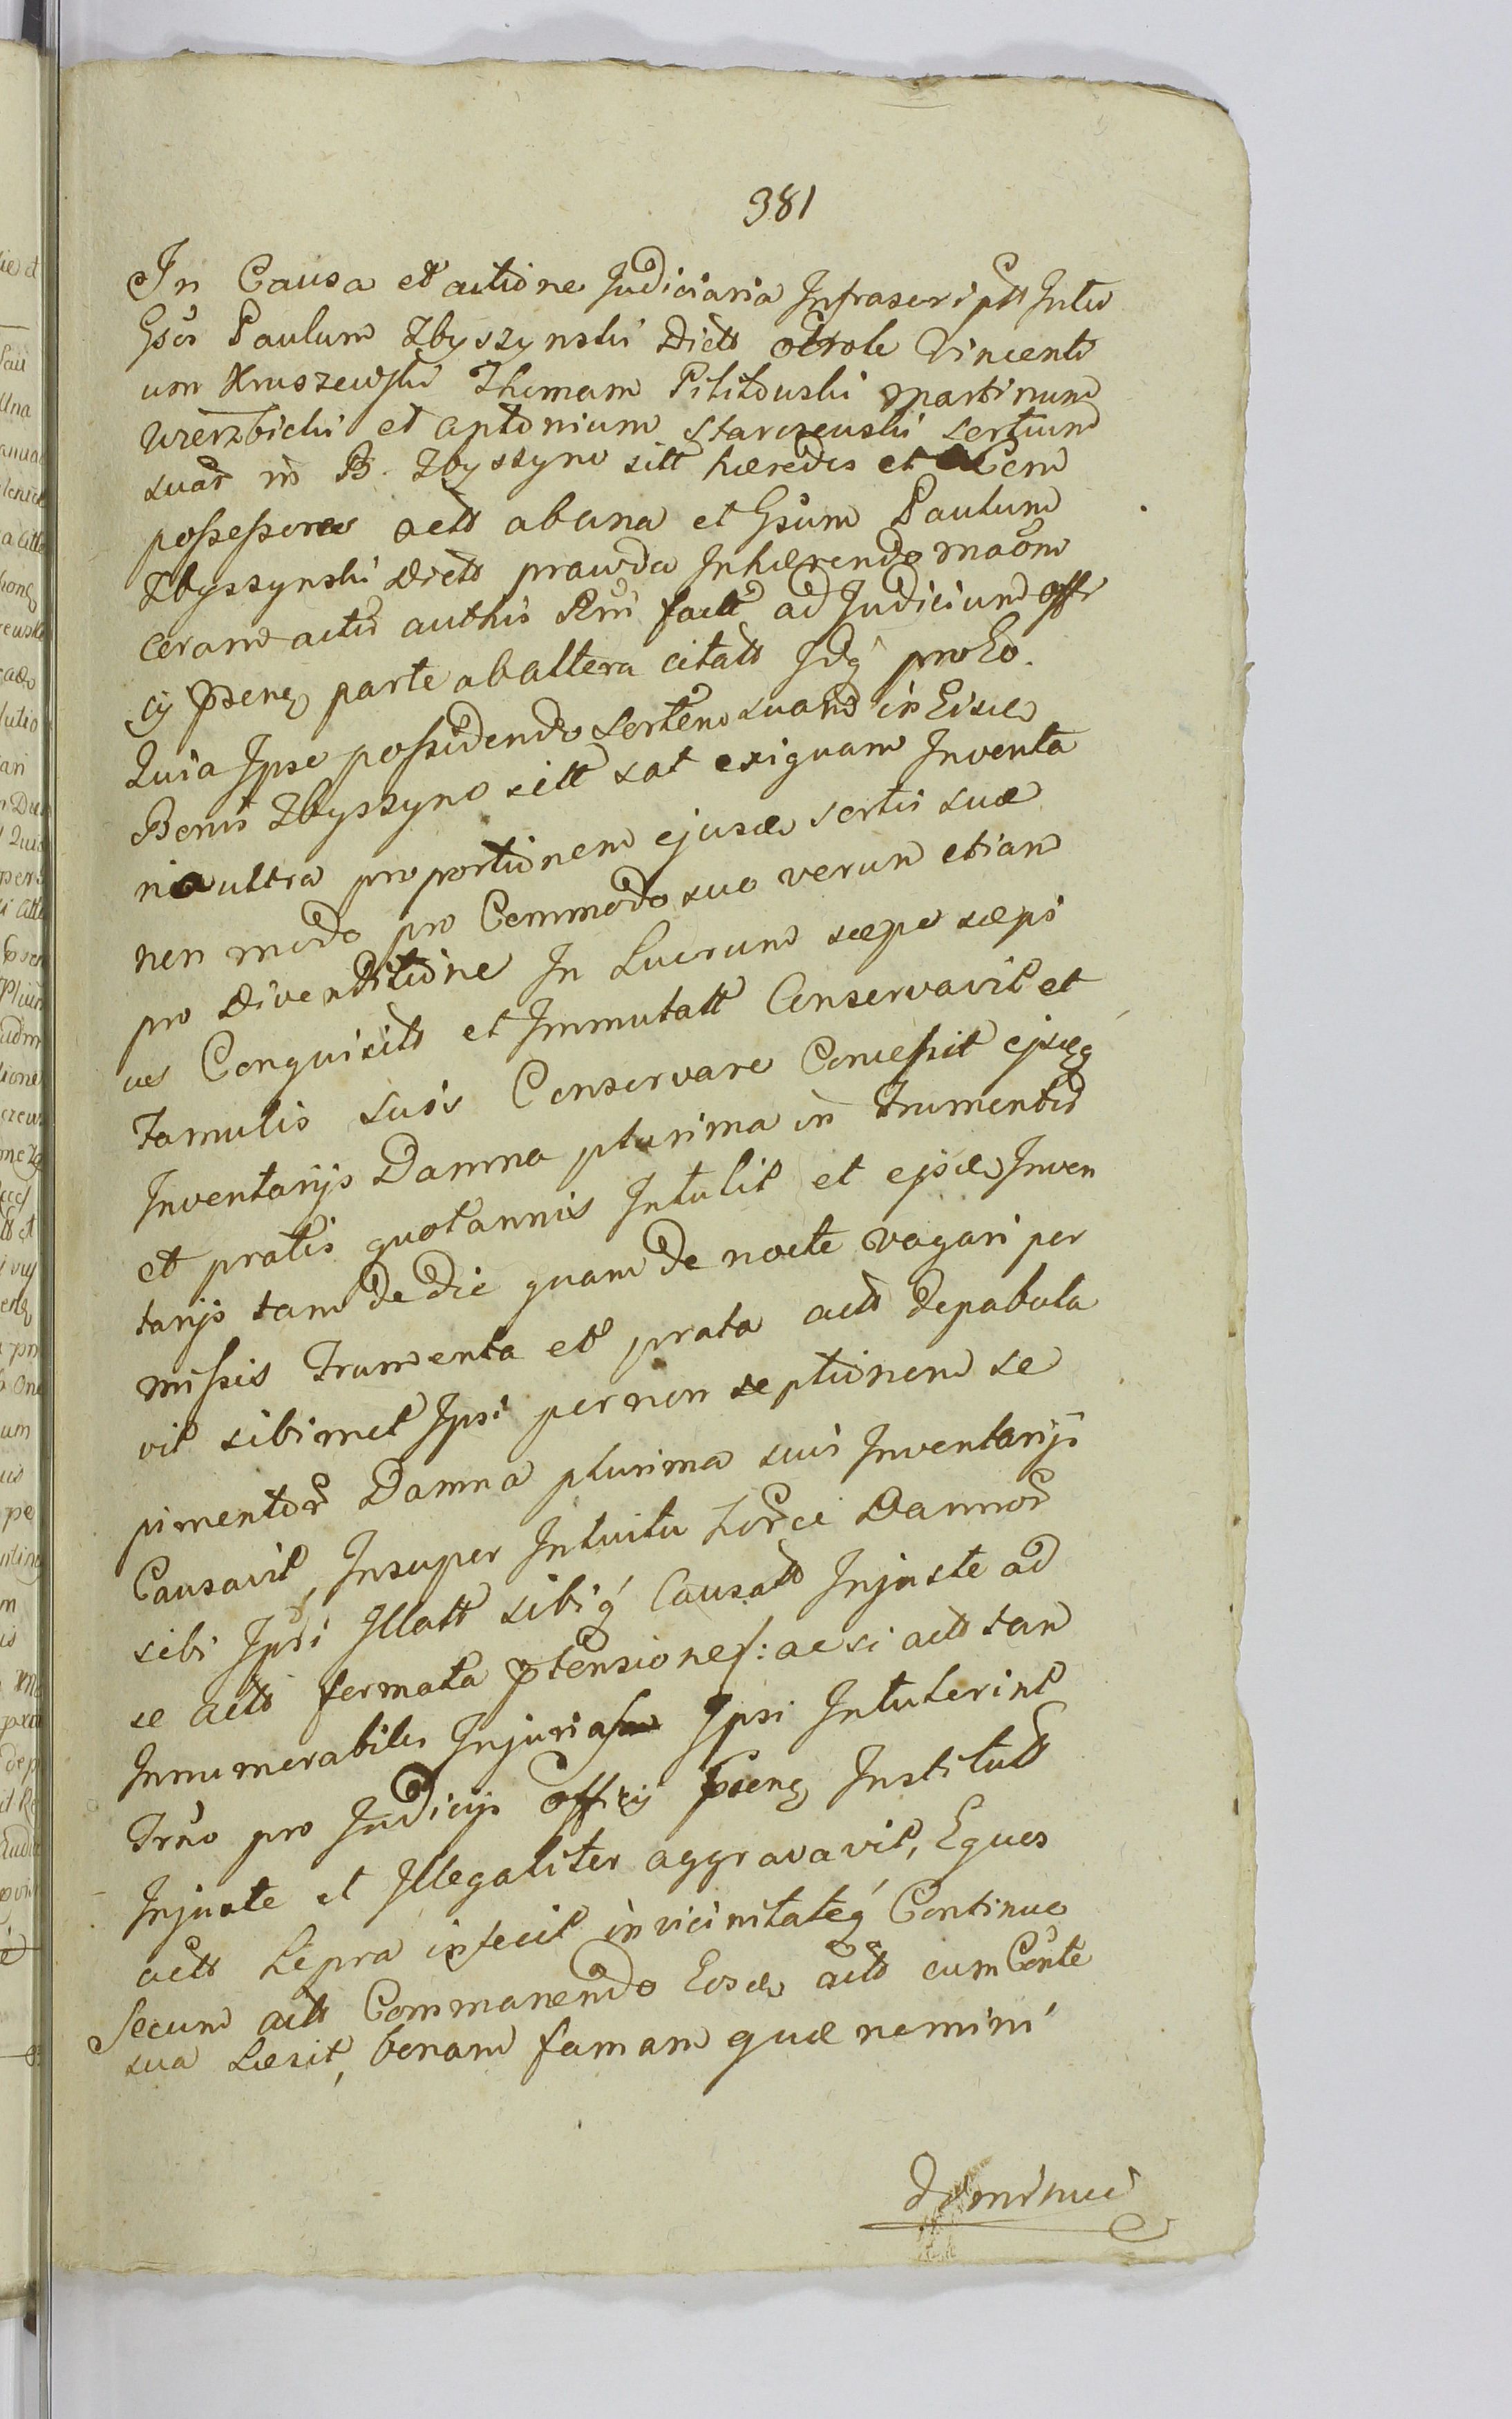 381
In Causa et actione Judiciaria Infrascriptt Inter
Gsos Paulum Zbyszynski Dictt otrole Vincenti
um Kruszewski Thomam Pilitowski Martinum
Wierzbicki et Antonium Starczewski sortium
suar in B. Zbyszyno sitt hæredes et
possessores actt ab una et Gsum Paulum
Zbyszynski dictt prawda Inhærendo
ceram acti authis Rni factt ad Judicium Offi
cij pseng parte ab altera citatt Idq pro Eo.
Quia Ipse possidendo sortem suam in Eisd
Bonis Zbyszyno sitt sat exiguam Inventa
ria ultra proportionem ejusd sortis suæ
non modo pro Commodo suo verum etiam
pro Divenditione In Lucrum sæpe sæpi
us Conquisitt et Immutatt Conservavit et
Famulis suis Conservare Concessit ejsdq
Inventarijs Damna plurima in frumentis
et pratis quotannis Intulit et ejsd Inven
tarijs tam de die quam de nocte vagari per
missis Frumenta et prata actt depabula
vit sibimet Ipsi per non septionem se
pimentor Damna plurima suis Inventarijs
Causavit, Insuper Intuitu Damnor
sibi Ipsi Illatt sibiq Causatt Injuste ad
se actt formata ptensione/: ac si actt tam
Innumerabiles Injurias Ipsi Intulerint
Trno pro Judicijs Officij pseng Institutt
Injuste et Illegaliter aggravavit, Eques
actt Lepra infecit in vicinitateq Continuo
Secum actt Commanendo Eosd actt cum Conte
sua Læsit, bonam famam quæ nemini